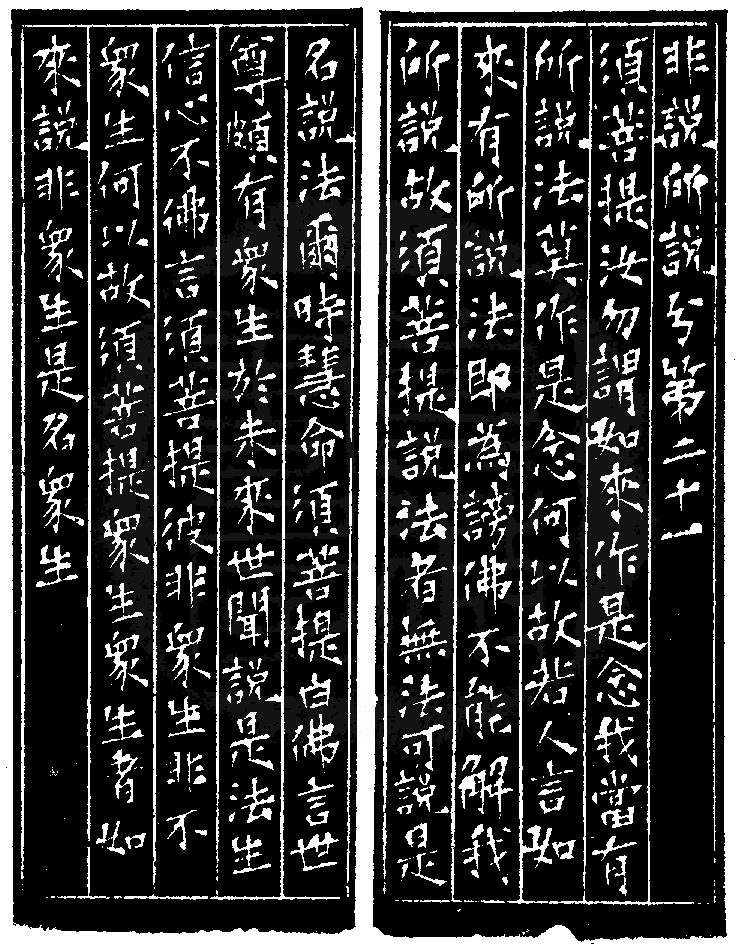 非説所説分第二十一
須菩提汝勿謂如來作是念我當有
所説法莫作是念何以故若人言如
來有所説法即為謗佛不能解我
所説故須菩提説法者無法可説是
名説法爾時慧命須菩提白佛言世
尊頗有衆生於未來世聞説是法生
信心不佛言須菩提彼非衆生非不
衆生何以故須菩提衆生衆生者如
來説非衆生是名衆生